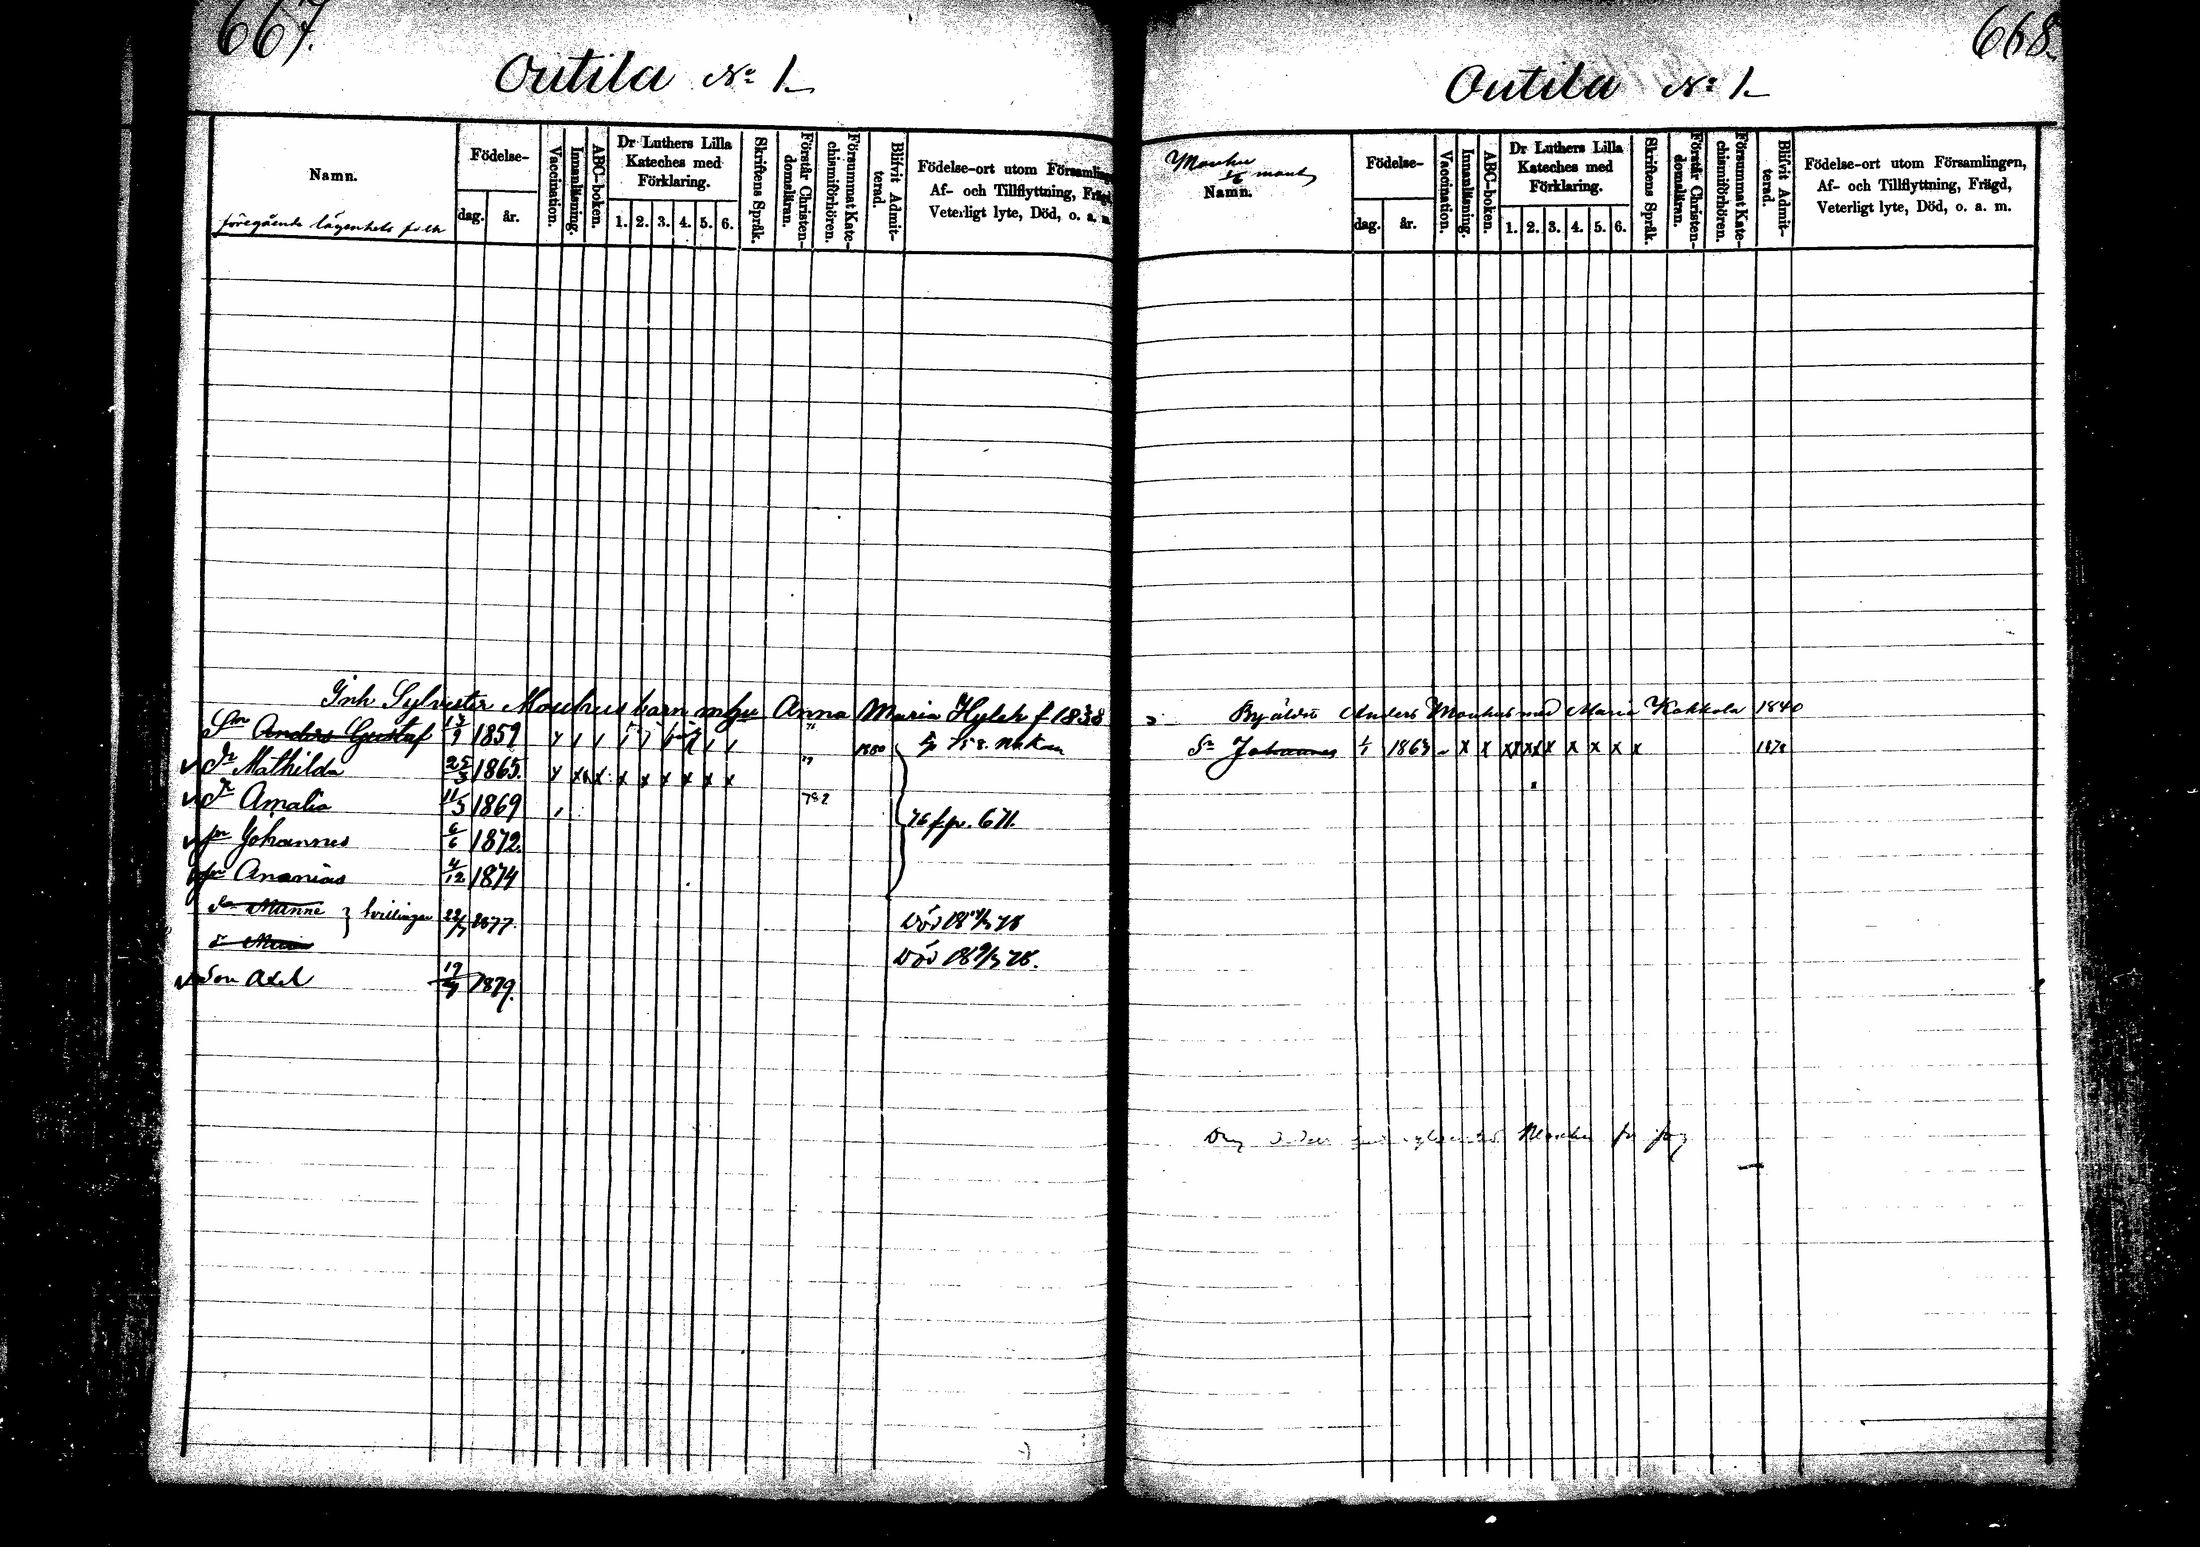 667.
Outila No 1.
Namn.
föregående lägenhets folk
Födelse-
dag. år.
Vaccination.
Innanläsning.
ABC-boken.
Dr Luthers Lilla
Kateches med
Förklaring.
1. 2. 3. 4. 5. 6.
Skriftens Språk.
Förstår Christen-
domsläran.
Försummat Kate-
chismiförhören.
Blifvit Admit-
terad.
Födelse-ort utom Församling
Af- och Tillflyttning, Frägd,
Veterligt lyte, Död, o. a. m.
Inh Sylvester Mouhus barn m hu Anna Maria f 1838
Sn Anders Gustaf 13/9 1859 1880
✓ Dr Mathilda 25/3 1865. x x x x x x x x
✓ Dr Amalia 11/3 1869
✓ sn Johannes 6/6 1872.
sn Ananias 4/12 1874
76 fr p. 671.
Manne } tvillingar 1877. Död
Död
✓ Son Axel 1879.
668.
Outila No 1.
Mouhu
Namn.
Födelse-
dag. år.
Vaccination.
Innanläsning.
ABC-boken.
Dr Luthers Lilla
Kateches med
Förklaring.
1. 2. 3. 4. 5. 6.
Skriftens Språk.
Förstår Christen-
domsläran.
Försummat Kate-
chismiförhören.
Blifvit Admit-
terad.
Födelse-ort utom Församlingen,
Af- och Tillflyttning, Frägd,
Veterligt lyte, Död, o. a. m.
Anders Mouhus med Maria Kokkola 1840
Sn Johannes 1/1 1863 x x x x x x x x x 1878